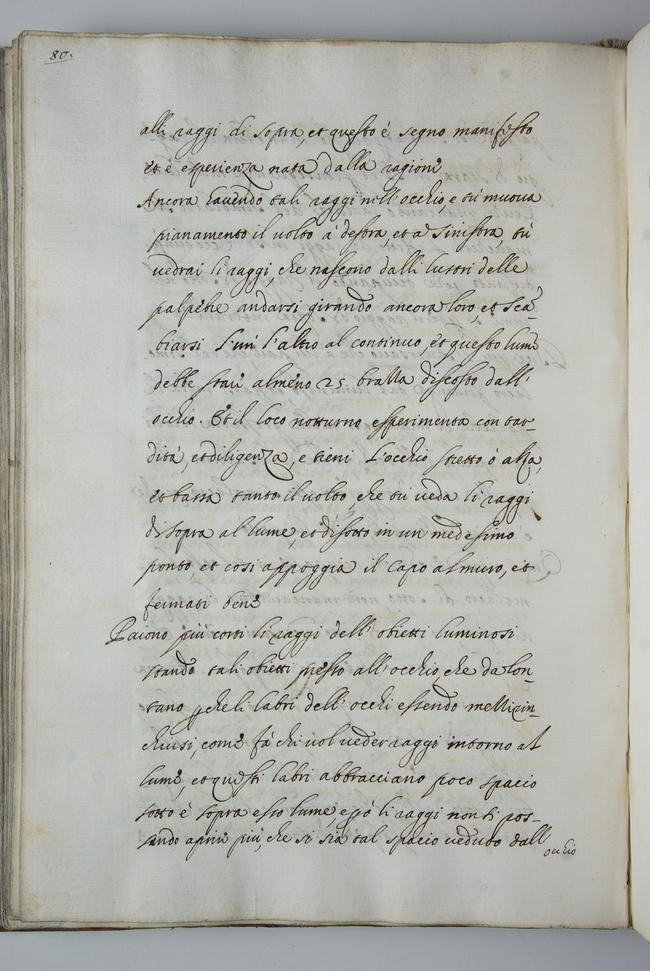 80.
alli raggi di sopra, et questo è segno manifesto
et è esperienza nata dalla ragione.
Ancora havendo tali raggi nell'occhio, e tu muova
pianamente il volto à destra, et à sinistra, tu
vedrai li raggi, che nascono dalli lustri delle
palpebre andarsi girando ancora loro, et scã
biarsi l'un' l'altro al continuo, et questo lume
debbe stare almeno 25. braccia discosto dall'
occhio. Et il loco notturno esperimenta con tar-
dità, et diligenza, e tieni l'occhio stretto ò alza,
et bassa tanto il volto, che tu veda li raggi
di sopra al lume, et di sotto in un medesimo
ponto, et così appoggia il capo al muro, et
fermati bene
Paiono più corti li raggi dell'obietti luminosi
stando tali obietti presso all'occhio, che da lon-
tano perche li labri dell'occhi essendo mezzi rin-
chiusi, come fà chi vol veder raggi intorno al
lume, et questi labri abbracciano poco spacio
sotto è sopra esso lume, e però li raggi non si pos-
sendo aprire più, che si sia tal spacio veduto dall
occhio